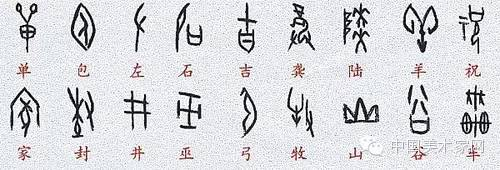 单 包 左 石 吉 龚 陆 羊 祝
家 封 井 巫 弓 牧 山 谷 车
中国美术家网